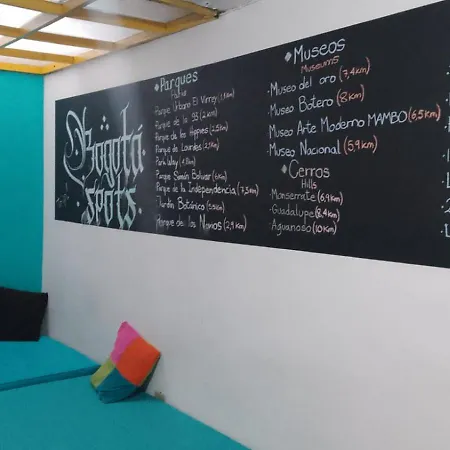 Bogotá
spots.
Parques
Native
Parque Urbano El Virrey
Parque de la 93 (2 Km)
Parque de los Hippies (2,5 Km)
Parque de Lourdes (2,5 Km)
Park Way
Parque Simón Bolívar (6 Km)
Parque de la Independencia (7,3 Km)
Jardín Botánico
Parque de los Novios (2,9 Km)
Museos
Museums
Museo del oro (7,4 Km)
Museo Botero (8 Km)
Museo Arte Moderno MAMBO (6,5 Km)
Museo Nacional (5,9 Km)
Cerros
Hills
Monserrate (6,9 Km)
Guadalupe (8,4 Km)
Aguanoso (10 Km)